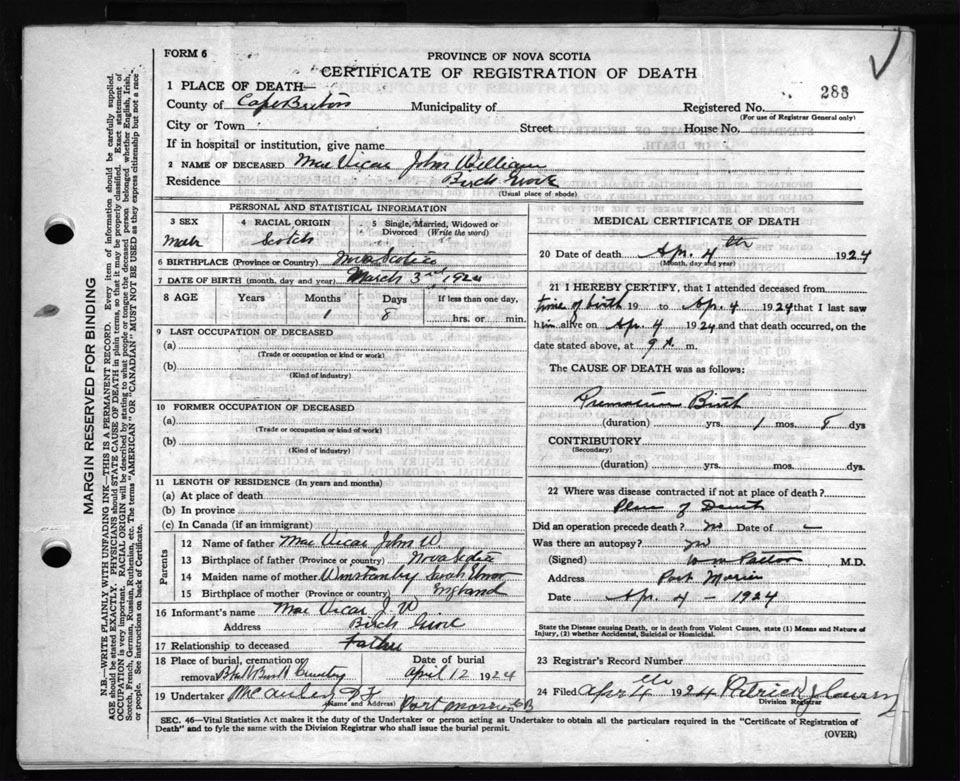 FORM 6
PROVINCE OF NOVA SCOTIA
CERTIFICATE OF REGISTRATION OF DEATH
283
1 PLACE OF DEATH—
County of Cape Breton Municipality of Registered No.
(For use of Registrar General only)
City or Town Street House No.
If in hospital or institution, give name
2 NAME OF DECEASED Mac Vicar John William
Residence Birch Grove
(Usual place of abode)
PERSONAL AND STATISTICAL INFORMATION
3 SEX 4 RACIAL ORIGIN 5 Single, Married, Widowed or Divorced (Write the word)
male Scotch
6 BIRTHPLACE (Province or Country) Nova Scotia
7 DATE OF BIRTH (month, day and year) March 3rd 1924
8 AGE Years Months Days If less than one day,
1 8 hrs. or min.
9 LAST OCCUPATION OF DECEASED
(a)
(Trade or occupation or kind or work)
(b)
(Kind of industry)
10 FORMER OCCUPATION OF DECEASED
(a)
(Trade or occupation or kind of work)
(b)
(Kind of industry)
11 LENGTH OF RESIDENCE (In years and months)
(a) At place of death
(b) In province
(c) In Canada (if an immigrant)
Parents
12 Name of father Mac Vicar John W.
13 Birthplace of father (Province or country) Nova Scotia
14 Maiden name of mother Winstanley Sarah
15 Birthplace of mother (Province or country) England
16 Informant's name Mac Vicar J. W.
Address Birch Grove
17 Relationship to deceased Father
18 Place of burial, cremation or removal Cemetery
Date of burial April 12 1924
19 Undertaker McAuley
(Name and Address) Port Morien CB
MEDICAL CERTIFICATE OF DEATH
20 Date of death Apr. 4th 1924
(Month, day and year)
21 I HEREBY CERTIFY, that I attended deceased from
time of birth 19 to Apr. 4 1924 that I last saw
him alive on Apr. 4 1924 and that death occurred, on the
date stated above, at 9 A. m.
The CAUSE OF DEATH was as follows:
Premature Birth
(duration) yrs. 1 mos. 8 dys
CONTRIBUTORY
(Secondary)
(duration) yrs. mos. dys.
22 Where was disease contracted if not at place of death?
Place of Death
Did an operation precede death? no Date of —
Was there an autopsy? no
(Signed) Wm M.D.
Address Port Morien
Date Apr. 4 - 1924
State the Disease causing Death, or in death from Violent Causes, state (1) Means and Nature of
Injury, (2) whether Accidental, Suicidal or Homicidal.
23 Registrar's Record Number
24 Filed Apr 4th 1924 Patrick
Division Registrar
SEC. 46—Vital Statistics Act makes it the duty of the Undertaker or person acting as Undertaker to obtain all the particulars required in the "Certificate of Registration of
Death" and to fyle the same with the Division Registrar who shall issue the burial permit.
(OVER)
MARGIN RESERVED FOR BINDING
N.B.—WRITE PLAINLY WITH UNFADING INK—THIS IS A PERMANENT RECORD. Every item of information should be carefully supplied.
AGE should be stated EXACTLY. PHYSICIANS should STATE CAUSE OF DEATH in plain terms, so that it may be properly classified. Exact statement of
OCCUPATION is very important. RACIAL ORIGIN will be described by stating to what people or tongue the deceased person belonged whether English, Irish,
Scotch, French, German, Russian, Ruthenian, etc. The terms "AMERICAN" OR "CANADIAN" MUST NOT BE USED as they express citizenship but not a race
or people. See instructions on back of Certificate.